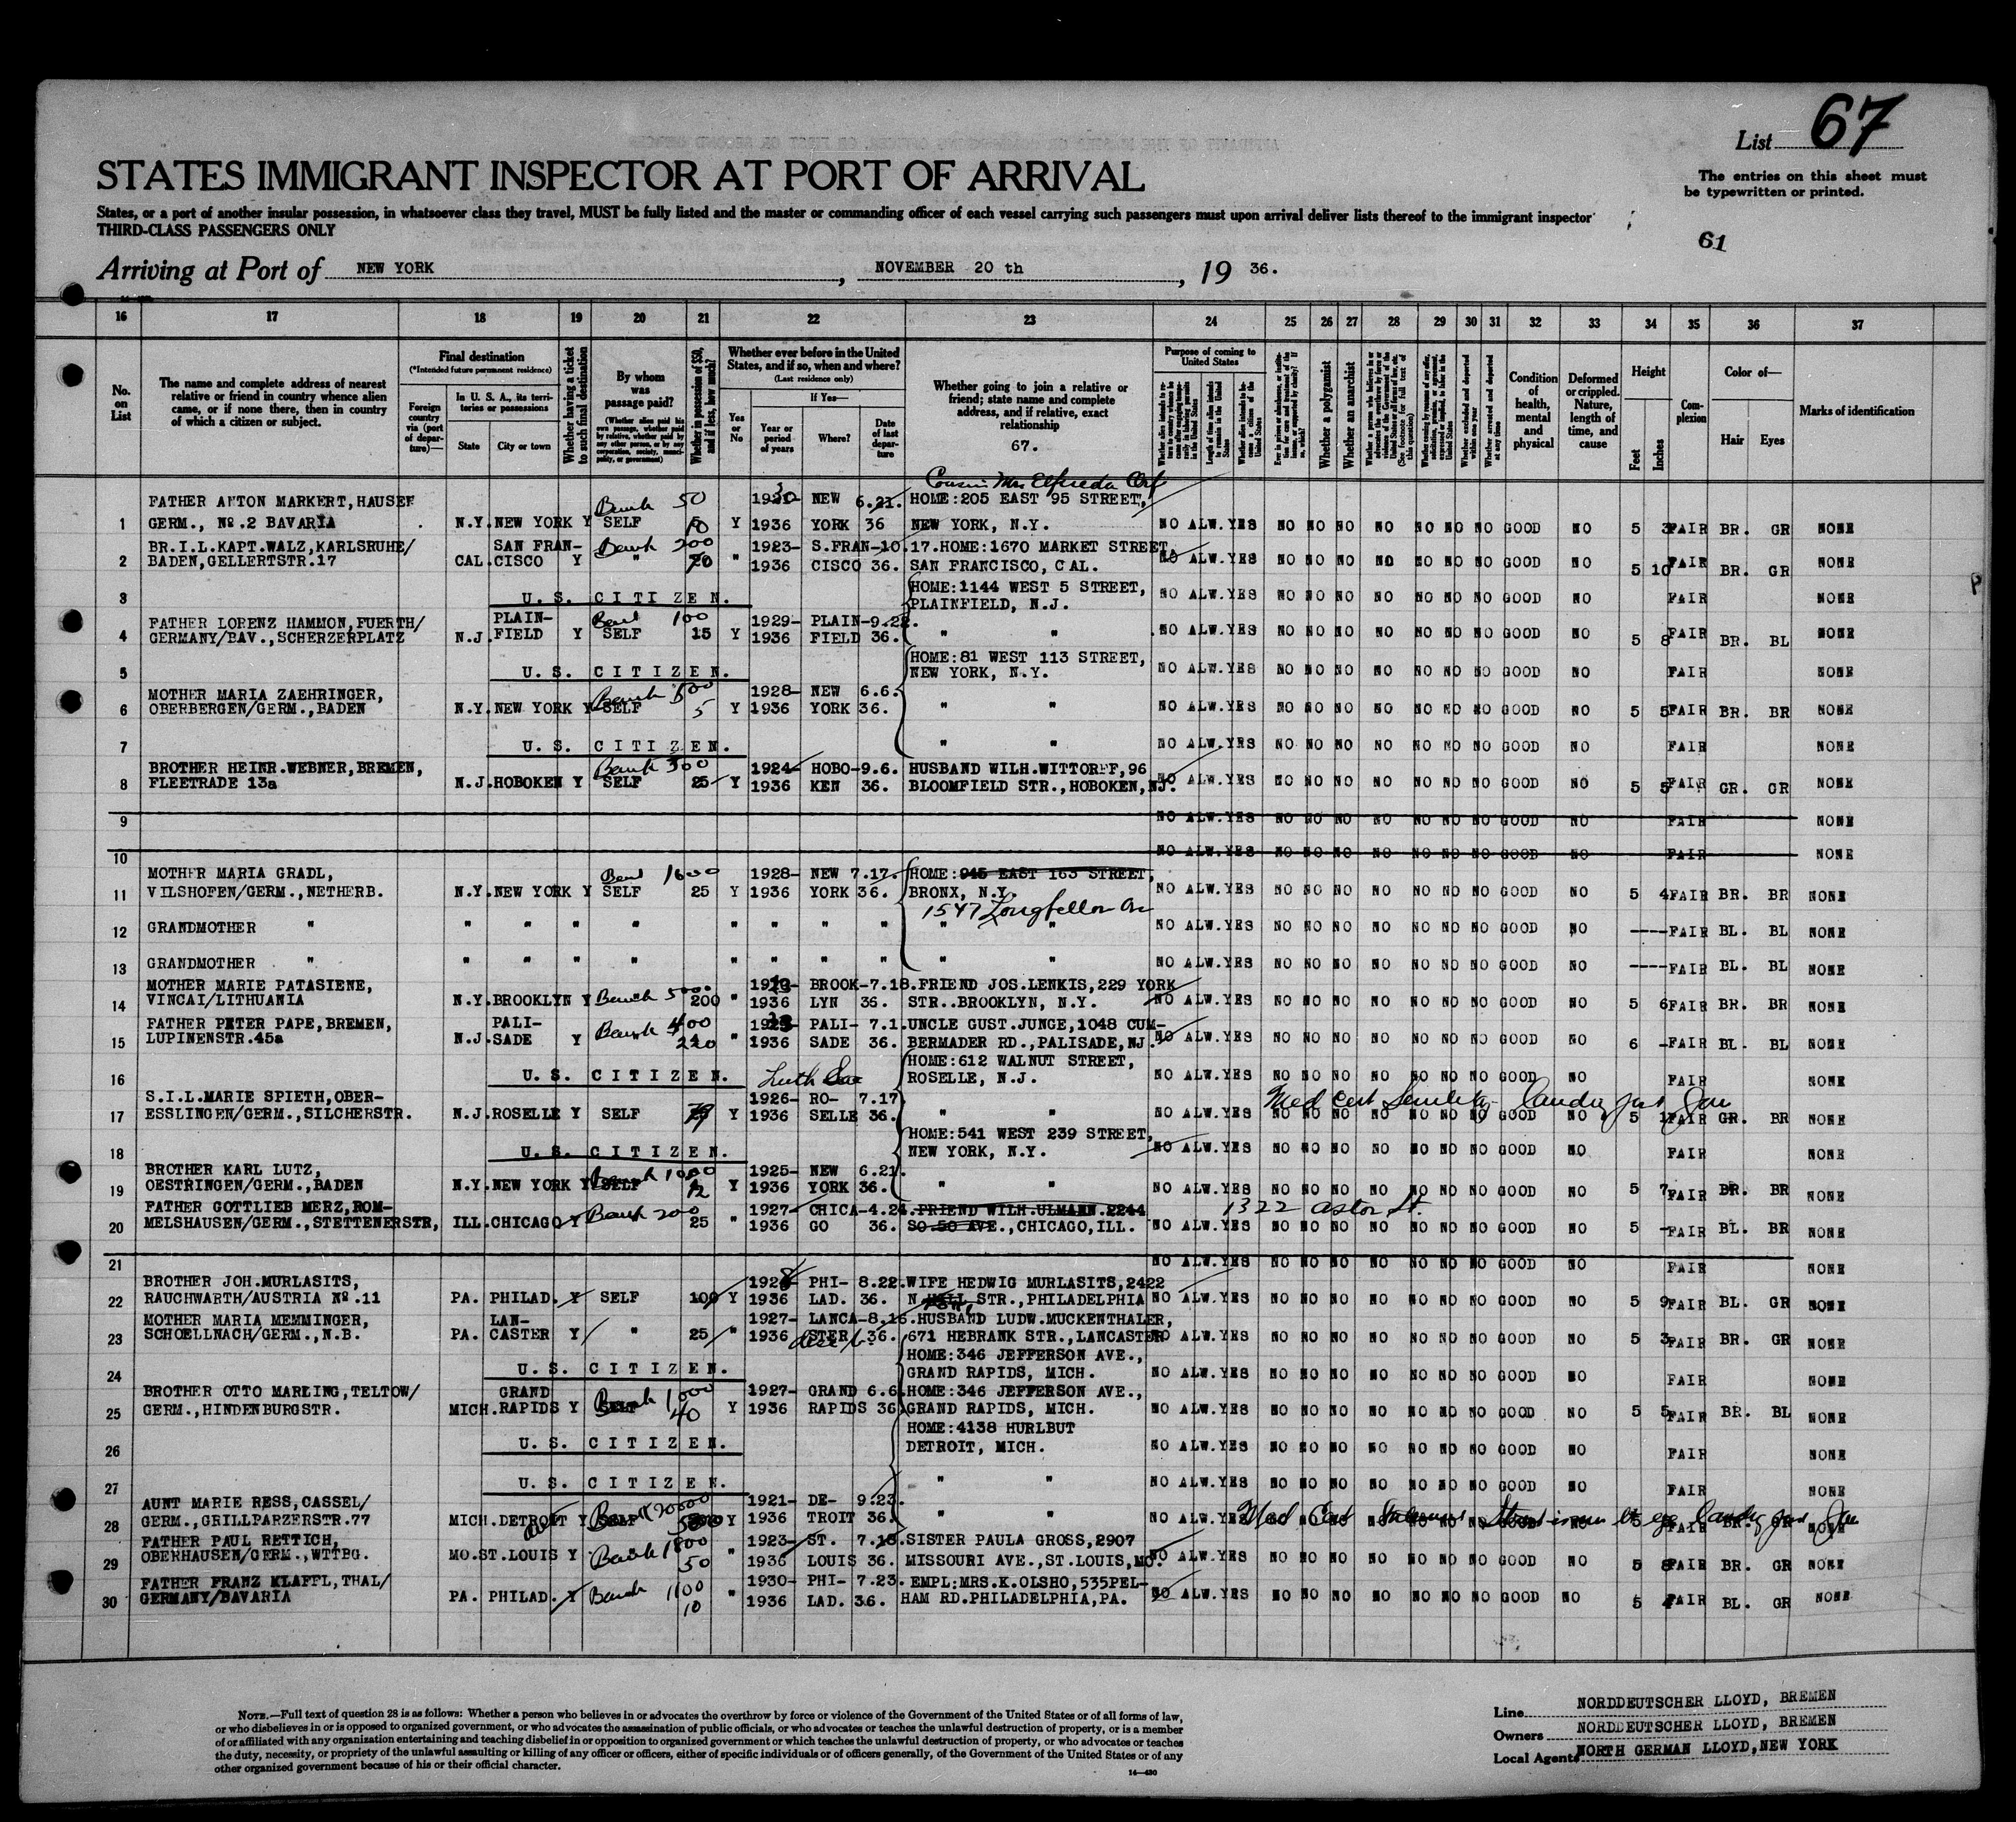 List 67
The entries on this sheet must
be typewritten or printed.
STATES IMMIGRANT INSPECTOR AT PORT OF ARRIVAL
States, or a port of another insular possession, in whatsoever class they travel, MUST be fully listed and the master or commanding officer of each vessel carrying such passengers must upon arrival deliver lists thereof to the immigrant inspector
THIRD-CLASS PASSENGERS ONLY
61
Arriving at Port of NEW YORK, NOVEMBER 20 th, 19 36.
16 17 18 19 20 21 22 23 24 25 26 27 28 29 30 31 32 33 34 35 36 37
No. on List
The name and complete address of nearest relative or friend in country whence alien came, or if none there, then in country of which a citizen or subject.
Final destination
(*Intended future permanent residence)
Foreign country via (port of departure)—
In U. S. A., its territories or possessions
State City or town
Whether having a ticket to such final destination
By whom was passage paid?
(Whether alien paid his own passage, whether paid by relative, whether paid by any other person, or by any corporation, society, municipality, or government)
Whether in possession of $50, and if less, how much?
Whether ever before in the United States, and if so, when and where?
(Last residence only)
Yes or No
If Yes—
Year or period of years Where? Date of last departure
Whether going to join a relative or friend; state name and complete address, and if relative, exact relationship
67.
Purpose of coming to United States
Whether a polygamist
Whether an anarchist
Condition of health, mental and physical
Deformed or crippled. Nature, length of time, and cause
Height
Feet Inches
Complexion
Color of—
Hair Eyes
Marks of identification
Cousin Mrs Elfrieda
FATHER ANTON MARKERT, HAUSEN Bank 50 1930- NEW 6.21. HOME:205 EAST 95 STREET,
1 GERM., No.2 BAVARIA N.Y. NEW YORK Y SELF 10 Y 1936 YORK 36 NEW YORK, N.Y. NO ALW. YES NO NO NO NO NO NO NO NO GOOD NO 5 3 FAIR BR. GR NONE
BR.I.L.KAPT.WALZ,KARLSRUHE/ SAN FRAN- Bank 200 1923- S.FRAN-10.17. HOME:1670 MARKET STREET
2 BADEN,GELLERTSTR.17 CAL. CISCO Y " 70 " 1936 CISCO 36. SAN FRANCISCO, CAL. NO ALW. YES NO NO NO NO NO NO NO NO GOOD NO 5 10 FAIR BR. GR NONE
HOME:1144 WEST 5 STREET,
3 U. S. CITIZEN. PLAINFIELD, N.J. NO ALW. YES NO NO NO NO NO NO NO NO GOOD NO FAIR NONE
FATHER LORENZ HAMMON,FUERTH/ PLAIN- Bank 100 1929- PLAIN-9.22.
4 GERMANY/BAV.,SCHERZERPLATZ N.J. FIELD Y SELF 15 Y 1936 FIELD 36. " " NO ALW. YES NO NO NO NO NO NO NO NO GOOD NO 5 8 FAIR BR. BL NONE
HOME:81 WEST 113 STREET,
5 U. S. CITIZEN. NEW YORK, N.Y. NO ALW. YES NO NO NO NO NO NO NO NO GOOD NO FAIR NONE
MOTHER MARIA ZAEHRINGER, Bank 500 1928- NEW 6.6.
6 OBERBERGEN/GERM.,BADEN N.Y. NEW YORK Y SELF 5 Y 1936 YORK 36. " " NO ALW. YES NO NO NO NO NO NO NO NO GOOD NO 5 5 FAIR BR. BR NONE
7 U. S. CITIZEN. " " NO ALW. YES NO NO NO NO NO NO NO NO GOOD NO FAIR NONE
BROTHER HEINR.WEBNER,BREMEN, Bank 300 1924- HOBO-9.6. HUSBAND WILH.WITTORFF,96
8 FLEETRADE 13a N.J. HOBOKEN Y SELF 25 Y 1936 KEN 36. BLOOMFIELD STR.,HOBOKEN,NJ. NO ALW. YES NO NO NO NO NO NO NO NO GOOD NO 5 5 FAIR GR. GR NONE
9 NO ALW. YES NO NO NO NO NO NO NO NO GOOD NO FAIR NONE
10 NO ALW. YES NO NO NO NO NO NO NO NO GOOD NO FAIR NONE
MOTHER MARIA GRADL, 1600 1928- NEW 7.17. HOME:945 EAST 163 STREET,
11 VILSHOFEN/GERM.,NETHERB. N.Y. NEW YORK Y SELF 25 Y 1936 YORK 36. BRONX, N.Y. NO ALW. YES NO NO NO NO NO NO NO NO GOOD NO 5 4 FAIR BR. BR NONE
1547 Longfellow Av
12 GRANDMOTHER " " " " " " " " " " " NO ALW. YES NO NO NO NO NO NO NO NO GOOD NO ---- FAIR BL. BL NONE
13 GRANDMOTHER " " " " " " " " " " " NO ALW. YES NO NO NO NO NO NO NO NO GOOD NO ---- FAIR BL. BL NONE
MOTHER MARIE PATASIENE, BROOK-7.18. FRIEND JOS.LENKIS,229 YORK
14 VINCAI/LITHUANIA N.Y. BROOKLYN Y Bank 5000 200 " 1936 LYN 36. STR..BROOKLYN, N.Y. NO ALW. YES NO NO NO NO NO NO NO NO GOOD NO 5 6 FAIR BR. BR NONE
FATHER PETER PAPE,BREMEN, PALI- Bank 400 PALI- 7.1. UNCLE GUST.JUNGE,1048 CUM-
15 LUPINENSTR.45a N.J. SADE Y 220 " 1936 SADE 36. BERMADER RD.,PALISADE,NJ. NO ALW. YES NO NO NO NO NO NO NO NO GOOD NO 6 - FAIR BL. BL NONE
HOME:612 WALNUT STREET,
16 U. S. CITIZEN. ROSELLE, N.J. NO ALW. YES NO NO NO NO NO NO NO NO GOOD NO FAIR NONE
S.I.L.MARIE SPIETH,OBER- 1926- RO- 7.17 Med Cert Senility
17 ESSLINGEN/GERM.,SILCHERSTR. N.J. ROSELLE Y SELF Y 1936 SELLE 36. " " NO ALW. YES NO NO NO NO NO NO NO NO GOOD NO 5 1 FAIR GR. BR NONE
HOME:541 WEST 239 STREET,
18 U. S. CITIZEN. NEW YORK, N.Y. NO ALW. YES NO NO NO NO NO NO NO NO GOOD NO FAIR NONE
BROTHER KARL LUTZ, Bank 1000 1925- NEW 6.21.
19 OESTRINGEN/GERM.,BADEN N.Y. NEW YORK Y SELF 12 Y 1936 YORK 36. " " NO ALW. YES NO NO NO NO NO NO NO NO GOOD NO 5 7 FAIR BR. BR NONE
FATHER GOTTLIEB MERZ,ROM- Bank 200 1927- CHICA-4.24. FRIEND WILH.ULMANN.2244 1322 Astor St.
20 MELSHAUSEN/GERM.,STETTENERSTR, ILL. CHICAGO Y 25 " 1936 GO 36. SO 50 AVE.,CHICAGO,ILL. NO ALW. YES NO NO NO NO NO NO NO NO GOOD NO 5 - FAIR BL. BR NONE
21 NO ALW. YES NO NO NO NO NO NO NO NO GOOD NO FAIR NONE
BROTHER JOH.MURLASITS, 1928 PHI- 8.22. WIFE HEDWIG MURLASITS,2422
22 RAUCHWARTH/AUSTRIA No.11 PA. PHILAD. Y SELF 100 Y 1936 LAD. 36. N. STR.,PHILADELPHIA NO ALW. YES NO NO NO NO NO NO NO NO GOOD NO 5 9 FAIR BL. GR NONE
MOTHER MARIA MEMMINGER, LAN- 1927- LANCA-8.16. HUSBAND LUDW.MUCKENTHALER,
23 SCHOELLNACH/GERM.,N.B. PA. CASTER Y " 25 " 1936 STER 36. 671 HEBRANK STR.,LANCASTER NO ALW. YES NO NO NO NO NO NO NO NO GOOD NO 5 3 FAIR BR. GR NONE
HOME:346 JEFFERSON AVE.,
24 U. S. CITIZEN. GRAND RAPIDS, MICH. NO ALW. YES NO NO NO NO NO NO NO NO GOOD NO FAIR NONE
BROTHER OTTO MARLING,TELTOW/ GRAND Bank 1000 1927- GRAND 6.6. HOME:346 JEFFERSON AVE.,
25 GERM.,HINDENBURGSTR. MICH. RAPIDS Y SELF 40 Y 1936 RAPIDS 36. GRAND RAPIDS, MICH. NO ALW. YES NO NO NO NO NO NO NO NO GOOD NO 5 5 FAIR BR. BL NONE
HOME:4138 HURLBUT
26 U. S. CITIZEN. DETROIT, MICH. NO ALW. YES NO NO NO NO NO NO NO NO GOOD NO FAIR NONE
27 U. S. CITIZEN. " " NO ALW. YES NO NO NO NO NO NO NO NO GOOD NO FAIR NONE
AUNT MARIE RESS,CASSEL/ 1921- DE- 9.23.
28 GERM.,GRILLPARZERSTR.77 MICH. DETROIT Y SELF Y 1936 TROIT 36. " " NO ALW. YES Med Cert
FATHER PAUL RETTICH, Bank 1800 1923- ST. 7.18. SISTER PAULA GROSS,2907
29 OBERHAUSEN/GERM.,WTTBG. MO. ST.LOUIS Y 50 " 1936 LOUIS 36. MISSOURI AVE.,ST.LOUIS,MO. NO ALW. YES NO NO NO NO NO NO NO NO GOOD NO 5 8 FAIR BR. GR NONE
FATHER FRANZ KLAFFL,THAL/ Bank 1100 1930- PHI- 7.23. EMPL:MRS.K.OLSHO,535PEL-
30 GERMANY/BAVARIA PA. PHILAD. Y 10 " 1936 LAD. 36. HAM RD.PHILADELPHIA,PA. NO ALW. YES NO NO NO NO NO NO NO NO GOOD NO 5 4 FAIR BL. GR NONE
NOTE.—Full text of question 28 is as follows: Whether a person who believes in or advocates the overthrow by force or violence of the Government of the United States or of all forms of law,
or who disbelieves in or is opposed to organized government, or who advocates the assassination of public officials, or who advocates or teaches the unlawful destruction of property, or is a member
of or affiliated with any organization entertaining and teaching disbelief in or opposition to organized government or which teaches the unlawful destruction of property, or who advocates or teaches
the duty, necessity, or propriety of the unlawful assaulting or killing of any officer or officers, either of specific individuals or of officers generally, of the Government of the United States or of any
other organized government because of his or their official character.
14—430
Line NORDDEUTSCHER LLOYD, BREMEN
Owners NORDDEUTSCHER LLOYD, BREMEN
Local Agents NORTH GERMAN LLOYD,NEW YORK